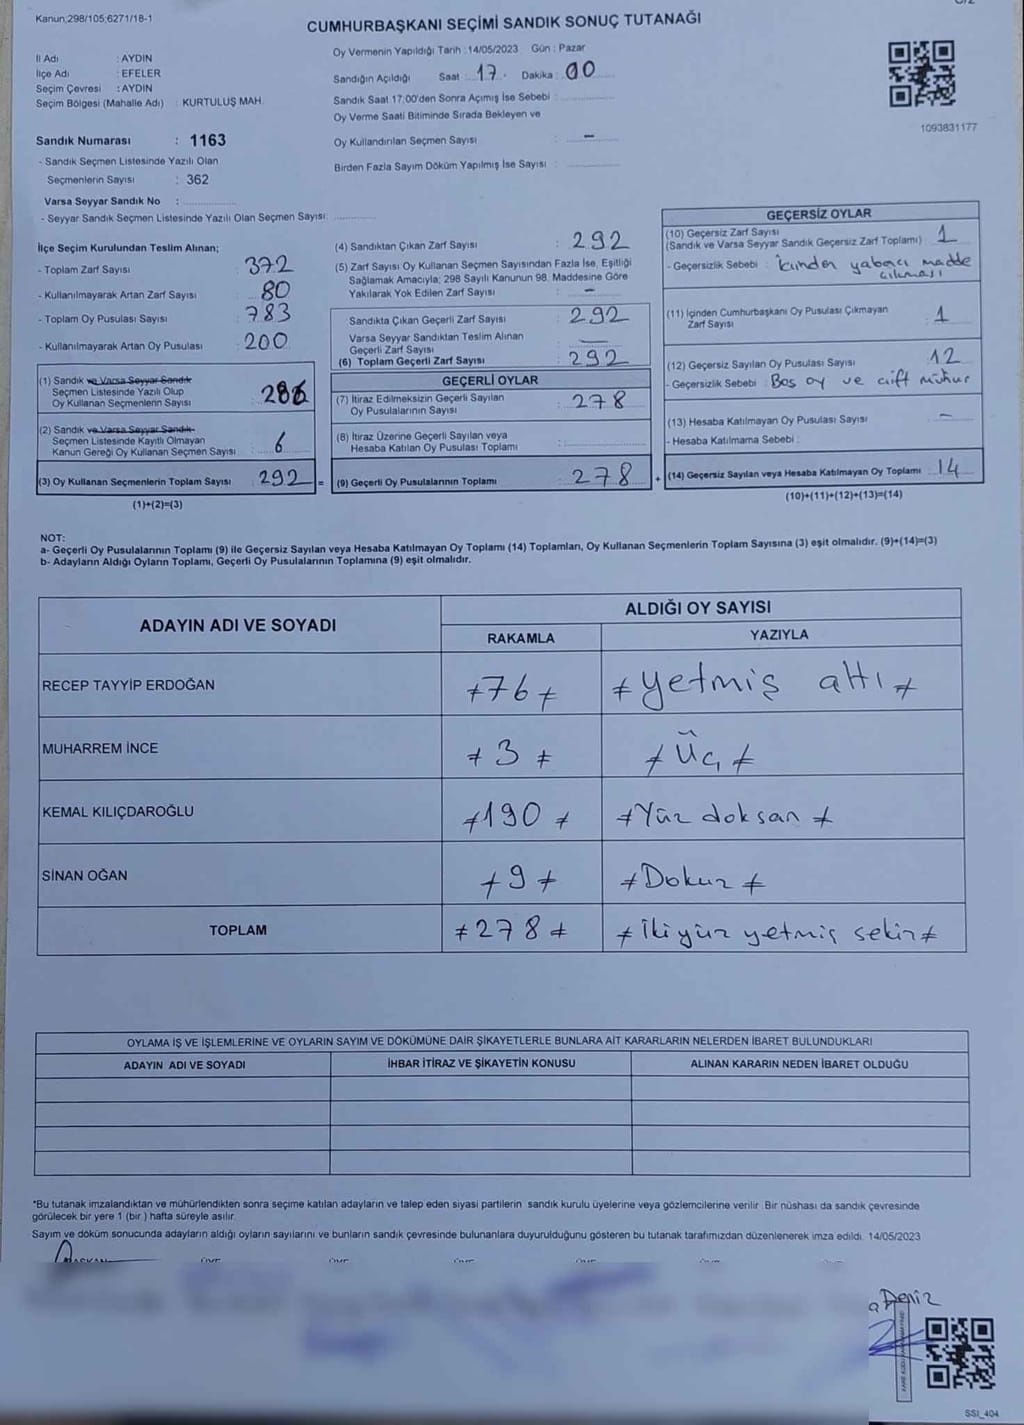 Kanun;298/105;6271/18-1
CUMHURBAŞKANI SEÇİMİ SANDIK SONUÇ TUTANAĞI
İl Adı : AYDIN
İlçe Adı : EFELER
Seçim Çevresi : AYDIN
Seçim Bölgesi (Mahalle Adı) : KURTULUŞ MAH.
Oy Vermenin Yapıldığı Tarih : 14/05/2023 Gün : Pazar
Sandığın Açıldığı Saat : 17 Dakika : 00
Sandık Saat 17:00'den Sonra Açımış İse Sebebi :
Oy Verme Saati Bitiminde Sırada Bekleyen ve
Oy Kullandırılan Seçmen Sayısı : –
Birden Fazla Sayım Döküm Yapılmış İse Sayısı :
1093831177
Sandık Numarası : 1163
- Sandık Seçmen Listesinde Yazılı Olan
Seçmenlerin Sayısı : 362
Varsa Seyyar Sandık No :
- Seyyar Sandık Seçmen Listesinde Yazılı Olan Seçmen Sayısı:
İlçe Seçim Kurulundan Teslim Alınan;
- Toplam Zarf Sayısı : 372
- Kullanılmayarak Artan Zarf Sayısı : 80
- Toplam Oy Pusulası Sayısı : 783
- Kullanılmayarak Artan Oy Pusulası : 200
(1) Sandık ve Varsa Seyyar Sandık
Seçmen Listesinde Yazılı Olup
Oy Kullanan Seçmenlerin Sayısı : 286
(2) Sandık ve Varsa Seyyar Sandık
Seçmen Listesinde Kayıtlı Olmayan
Kanun Gereği Oy Kullanan Seçmen Sayısı : 6
(3) Oy Kullanan Seçmenlerin Toplam Sayısı : 292 =
(1)+(2)=(3)
(4) Sandıktan Çıkan Zarf Sayısı : 292
(5) Zarf Sayısı Oy Kullanan Seçmen Sayısından Fazla İse, Eşitliği
Sağlamak Amacıyla; 298 Sayılı Kanunun 98. Maddesine Göre
Yakılarak Yok Edilen Zarf Sayısı : –
Sandıkta Çıkan Geçerli Zarf Sayısı : 292
Varsa Seyyar Sandıktan Teslim Alınan
Geçerli Zarf Sayısı : —
(6) Toplam Geçerli Zarf Sayısı : 292
GEÇERLİ OYLAR
(7) İtiraz Edilmeksizin Geçerli Sayılan
Oy Pusulalarının Sayısı : 278
(8) İtiraz Üzerine Geçerli Sayılan veya
Hesaba Katılan Oy Pusulası Toplamı :
(9) Geçerli Oy Pusulalarının Toplamı : 278 +
GEÇERSİZ OYLAR
(10) Geçersiz Zarf Sayısı
(Sandık ve Varsa Seyyar Sandık Geçersiz Zarf Toplamı) : 1
- Geçersizlik Sebebi : İçinden yabancı madde
çıkması
(11) İçinden Cumhurbaşkanı Oy Pusulası Çıkmayan
Zarf Sayısı : 1
(12) Geçersiz Sayılan Oy Pusulası Sayısı : 12
- Geçersizlik Sebebi : Boş oy ve çift mühür
(13) Hesaba Katılmayan Oy Pusulası Sayısı : –
- Hesaba Katılmama Sebebi :
(14) Geçersiz Sayılan veya Hesaba Katılmayan Oy Toplamı : 14
(10)+(11)+(12)+(13)=(14)
NOT:
a- Geçerli Oy Pusulalarının Toplamı (9) ile Geçersiz Sayılan veya Hesaba Katılmayan Oy Toplamı (14) Toplamları, Oy Kullanan Seçmenlerin Toplam Sayısına (3) eşit olmalıdır. (9)+(14)=(3)
b- Adayların Aldığı Oyların Toplamı, Geçerli Oy Pusulalarının Toplamına (9) eşit olmalıdır.
ADAYIN ADI VE SOYADI
ALDIĞI OY SAYISI
RAKAMLA YAZIYLA
RECEP TAYYİP ERDOĞAN ≠76≠ ≠yetmiş altı≠
MUHARREM İNCE ≠3≠ ≠Üç≠
KEMAL KILIÇDAROĞLU ≠190≠ ≠Yüz doksan≠
SİNAN OĞAN ≠9≠ ≠Dokuz≠
TOPLAM ≠278≠ ≠İkiyüz yetmiş sekiz≠
OYLAMA İŞ VE İŞLEMLERİNE VE OYLARIN SAYIM VE DÖKÜMÜNE DAİR ŞİKAYETLERLE BUNLARA AİT KARARLARIN NELERDEN İBARET BULUNDUKLARI
ADAYIN ADI VE SOYADI İHBAR İTİRAZ VE ŞİKAYETİN KONUSU ALINAN KARARIN NEDEN İBARET OLDUĞU
*Bu tutanak imzalandıktan ve mühürlendikten sonra seçime katılan adayların ve talep eden siyasi partilerin sandık kurulu üyelerine veya gözlemcilerine verilir. Bir nüshası da sandık çevresinde
görülecek bir yere 1 (bir) hafta süreyle asılır.
Sayım ve döküm sonucunda adayların aldığı oyların sayılarını ve bunların sandık çevresinde bulunanlara duyurulduğunu gösteren bu tutanak tarafımızdan düzenlenerek imza edildi. 14/05/2023
Deniz
SSI_404